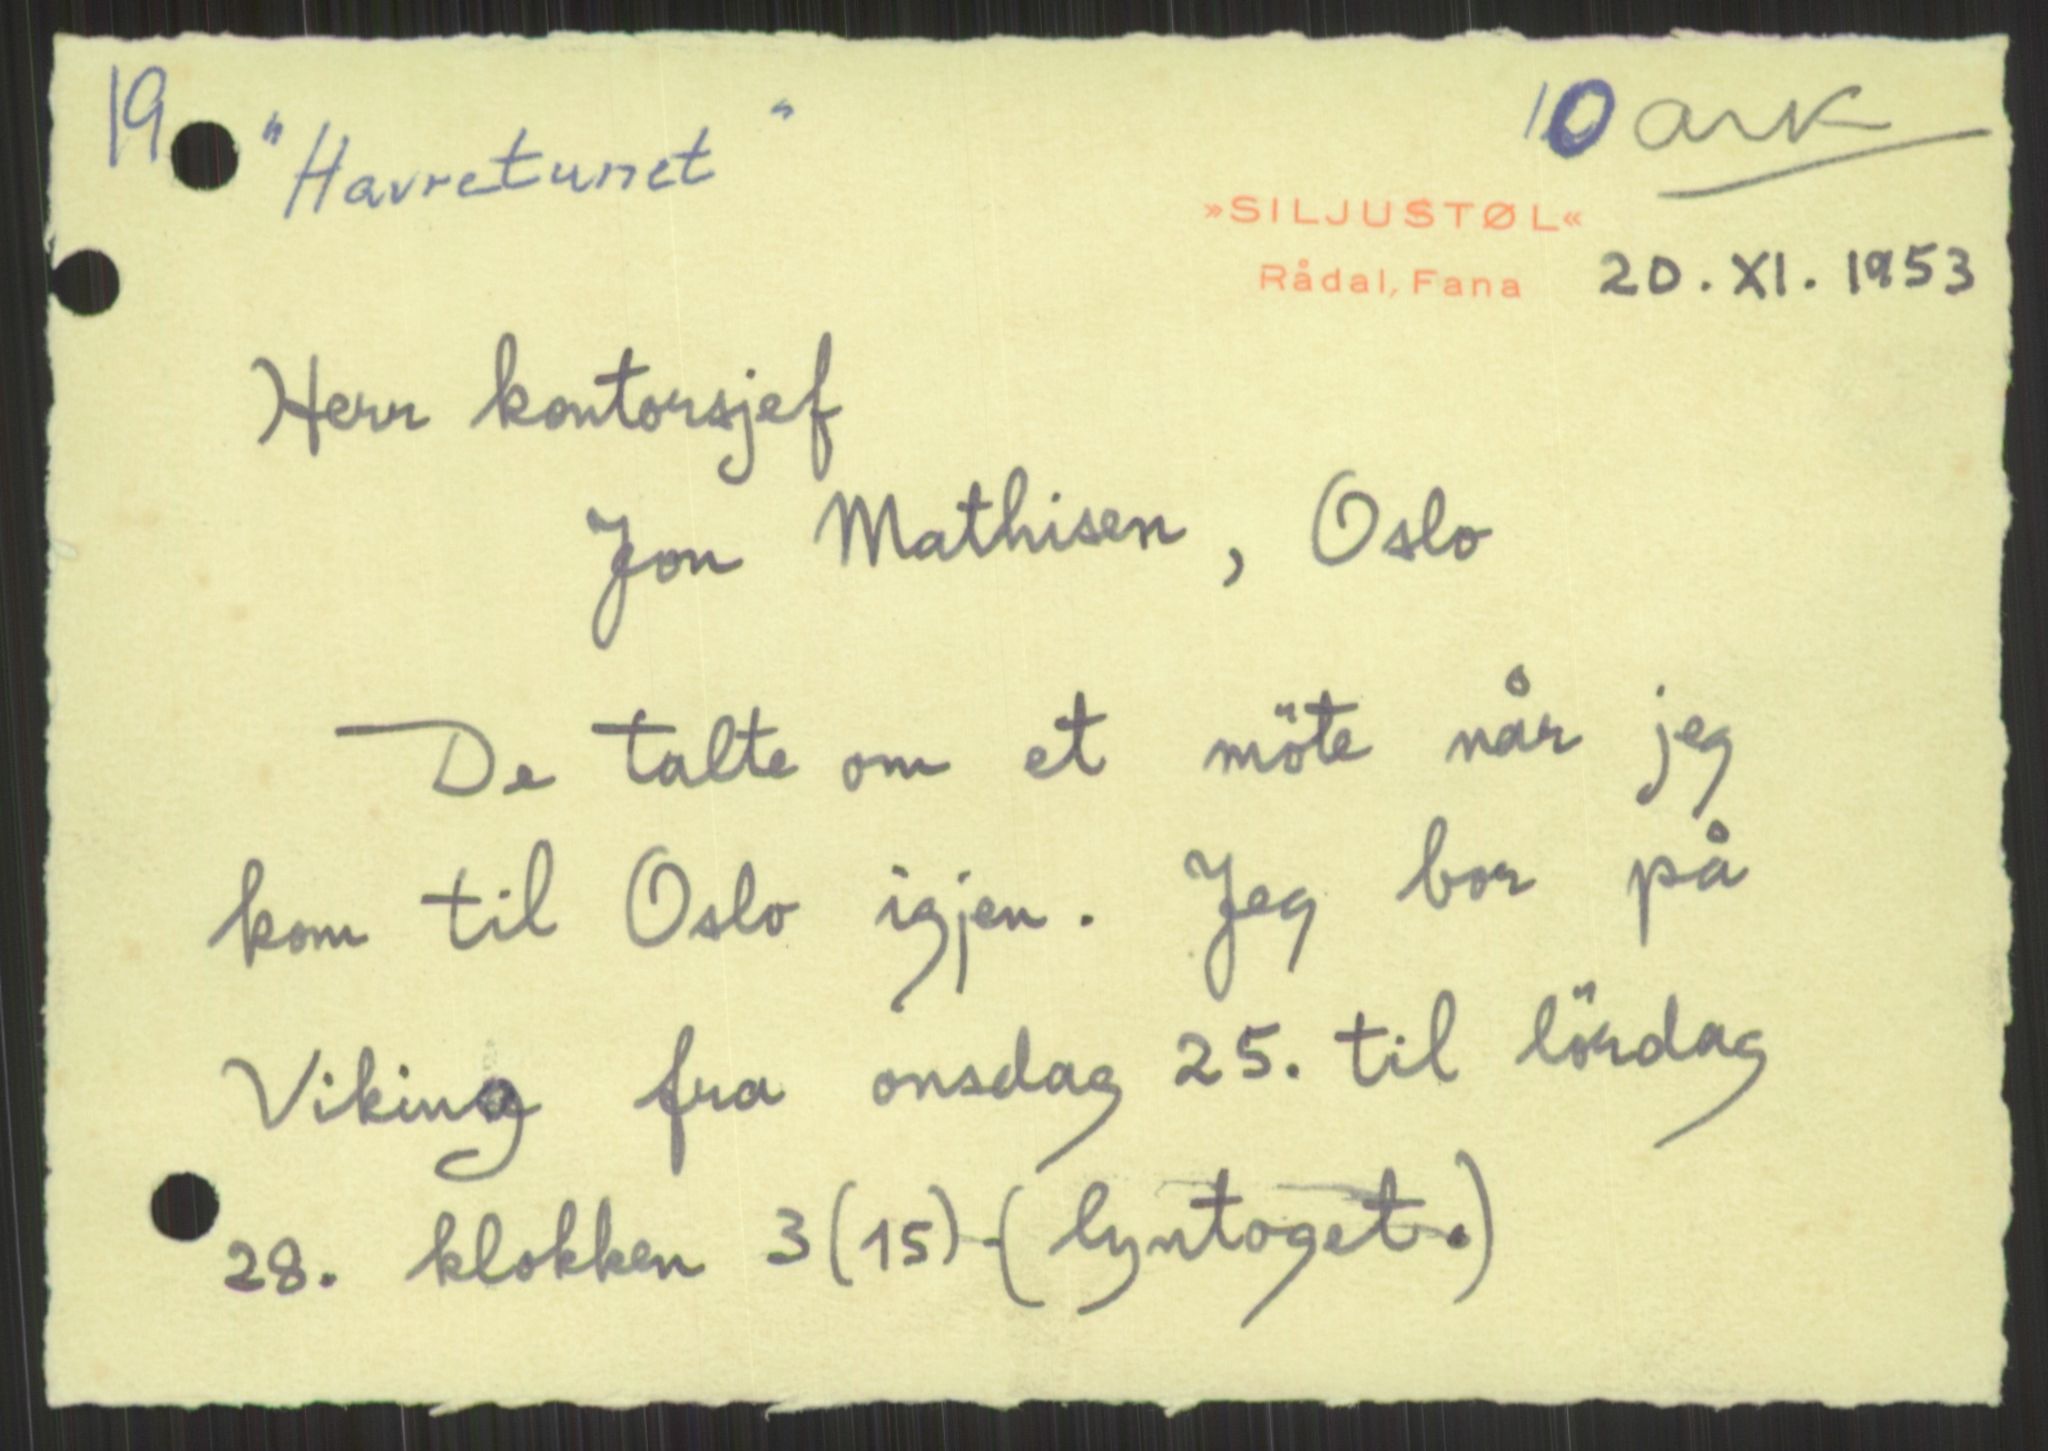 19
"Havretunet"
10 ark
»SILJUSTØL«
Rådal, Fana 20. XI. 1953
Herr kontorsjef
Jon Mathisen, Oslo
De talte om et möte når jeg
kom til Oslo igjen. Jeg bor på
Viking fra onsdag 25. til lördag
28. klokken 3 (15) - (lyntoget.)